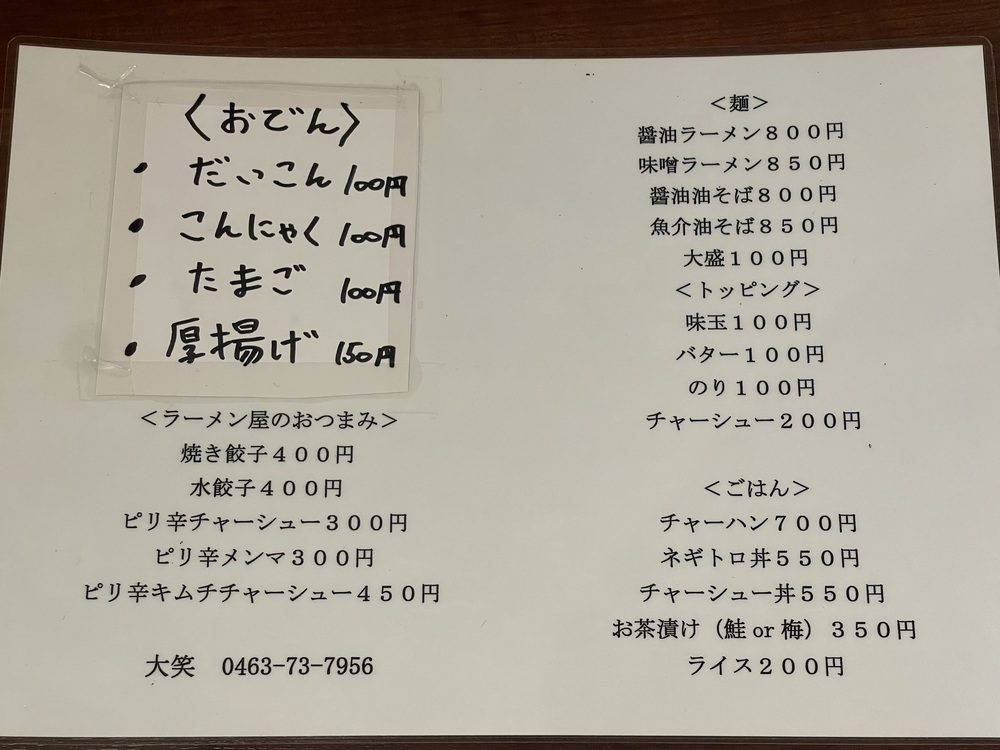 〈おでん〉
・ だいこん 100円
・ こんにゃく 100円
・ たまご 100円
・ 厚揚げ 150円
＜ラーメン屋のおつまみ＞
焼き餃子４００円
水餃子４００円
ピリ辛チャーシュー３００円
ピリ辛メンマ３００円
ピリ辛キムチチャーシュー４５０円
大笑　0463-73-7956
＜麺＞
醤油ラーメン８００円
味噌ラーメン８５０円
醤油油そば８００円
魚介油そば８５０円
大盛１００円
＜トッピング＞
味玉１００円
バター１００円
のり１００円
チャーシュー２００円
＜ごはん＞
チャーハン７００円
ネギトロ丼５５０円
チャーシュー丼５５０円
お茶漬け（鮭 or 梅）３５０円
ライス２００円